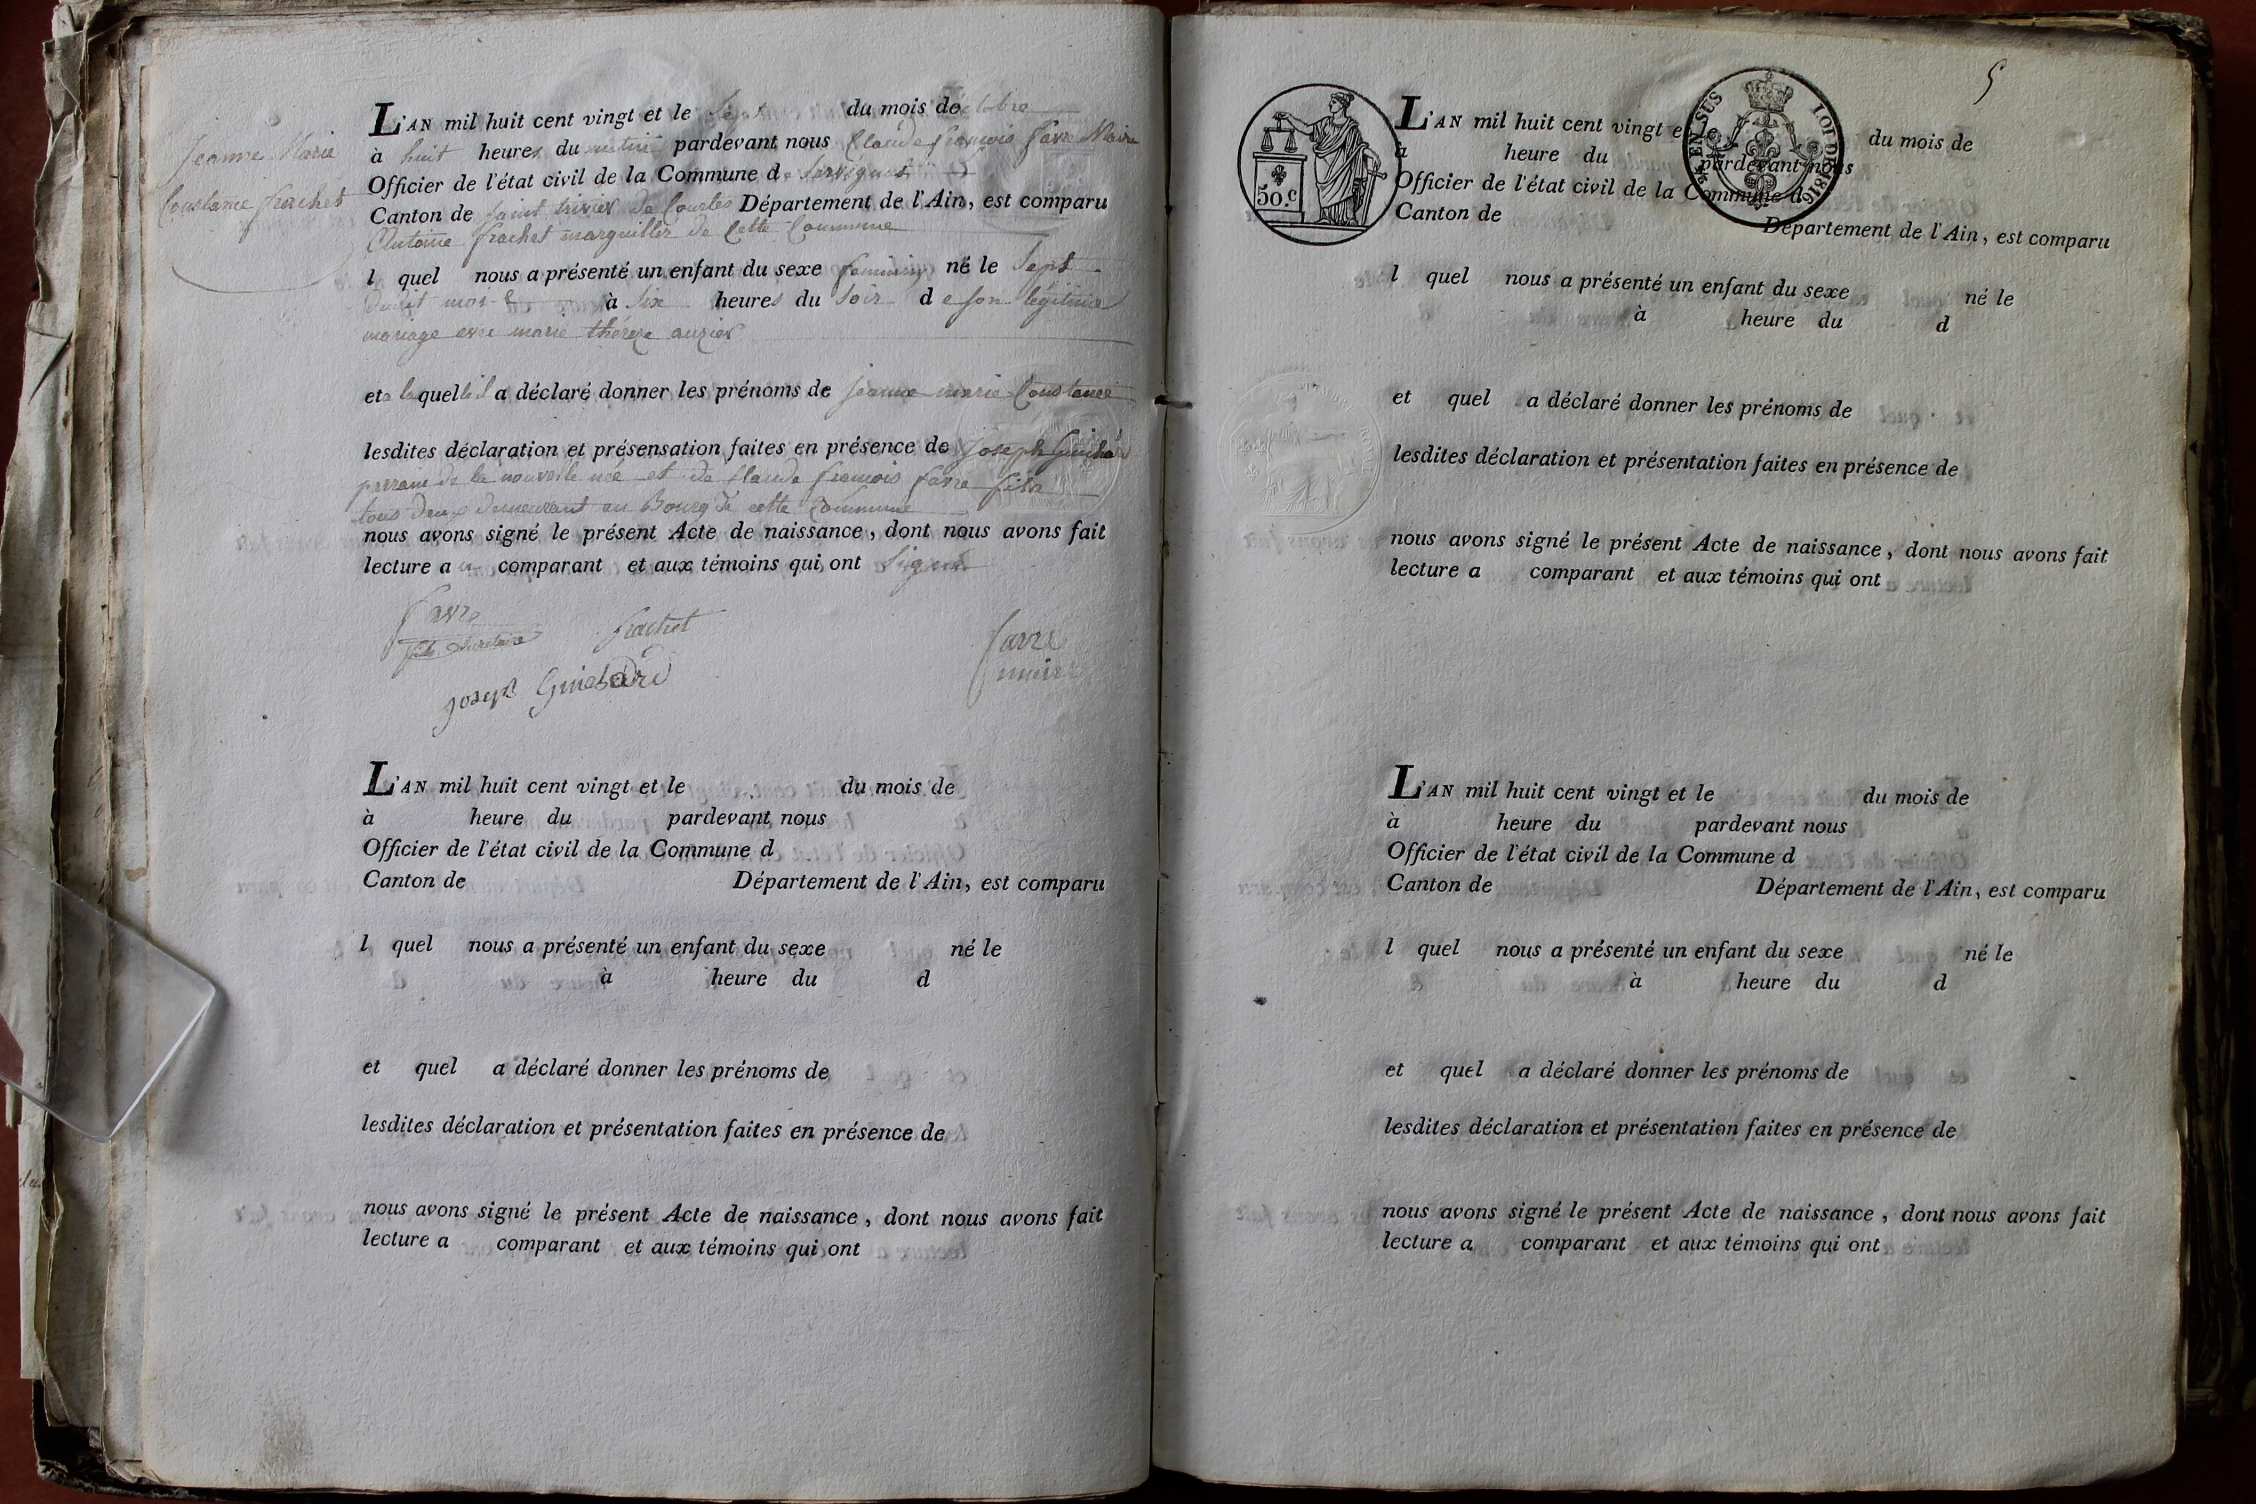 Jeanne Marie
Constance frachet
L'AN mil huit cent vingt et le Sept du mois de octobre
à huit heures du matin pardevant nous Claude françois favre Maire
Officier de l'état civil de la Commune de Servignat
Canton de saint trivier de Courtes Département de l'Ain, est comparu
Antoine frachet marguillier de Cette Commune
l quel nous a présenté un enfant du sexe feminin né le Sept
dudit mois à Six heures du Soir de son légitime
mariage avec marie thérèze
et lequel il a déclaré donner les prénoms de jeanne marie Constance
lesdites déclaration et présensation faites en présence de joseph Guichard
parrain de la nouvelle née et de Claude françois favre fils
tous deux demeurant au Bourg de cette Commune
nous avons signé le présent Acte de naissance, dont nous avons fait
lecture au comparant et aux témoins qui ont Signé
favre
fils Secretaire
frachet
favre
maire
joseph Guichard
L'AN mil huit cent vingt et le du mois de
à heure du pardevant nous
Officier de l'état civil de la Commune d
Canton de Département de l'Ain, est comparu
l quel nous a présenté un enfant du sexe né le
à heure du d
et quel a déclaré donner les prénoms de
lesdites déclaration et présentation faites en présence de
nous avons signé le présent Acte de naissance, dont nous avons fait
lecture a comparant et aux témoins qui ont
5
50.c
EN SUS LOI DE 1816
L'AN mil huit cent vingt et le du mois de
à heure du pardevant nous
Officier de l'état civil de la Commune d
Canton de Département de l'Ain, est comparu
l quel nous a présenté un enfant du sexe né le
à heure du d
et quel a déclaré donner les prénoms de
lesdites déclaration et présentation faites en présence de
nous avons signé le présent Acte de naissance, dont nous avons fait
lecture a comparant et aux témoins qui ont
L'AN mil huit cent vingt et le du mois de
à heure du pardevant nous
Officier de l'état civil de la Commune d
Canton de Département de l'Ain, est comparu
l quel nous a présenté un enfant du sexe né le
à heure du d
et quel a déclaré donner les prénoms de
lesdites déclaration et présentation faites en présence de
nous avons signé le présent Acte de naissance, dont nous avons fait
lecture a comparant et aux témoins qui ont